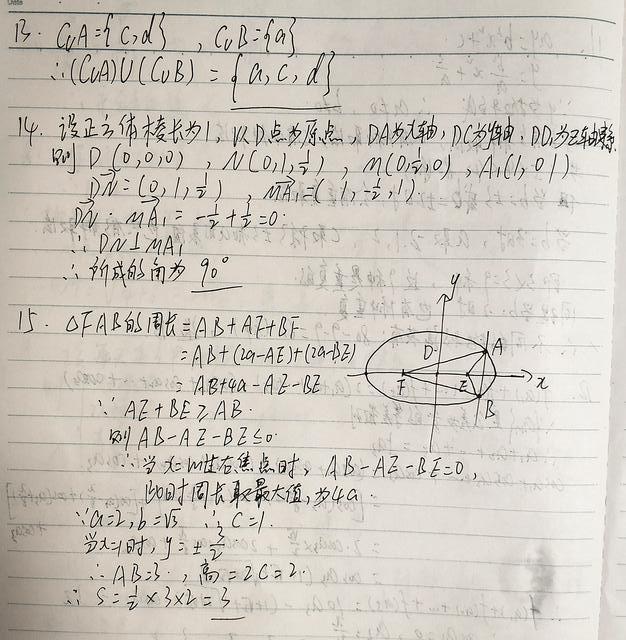 13. C∪A={c,d} , C∪B={a}
∴(C∪A)∪(C∪B) = {a,c,d}
14. 设正方体棱长为1, 以D点为原点, DA为x轴, DC为y轴, DD₁为z轴
则 D(0,0,0) , N(0,1,½) , M(0,½,0) , A₁(1,0,1)
DN=(0,1,½) , MA₁=(1,-½,1)
DN·MA₁=-½+½=0.
∴ DN⊥MA₁
∴ 所成的角为 90°
15. △FAB的周长=AB+AF+BF
=AB+(2a-AE)+(2a-BE)
=AB+4a-AE-BE
∵ AE+BE≥AB.
则AB-AE-BE≤0.
∴当x=m过右焦点时, AB-AE-BE=0,
此时周长取最大值,为4a.
∵a=2,b=√3 ∴C=1.
当x=1时, y=±3/2
∴AB=3, 高=2C=2.
∴ S=½×3×2=3
y
D
A
F
E
x
B